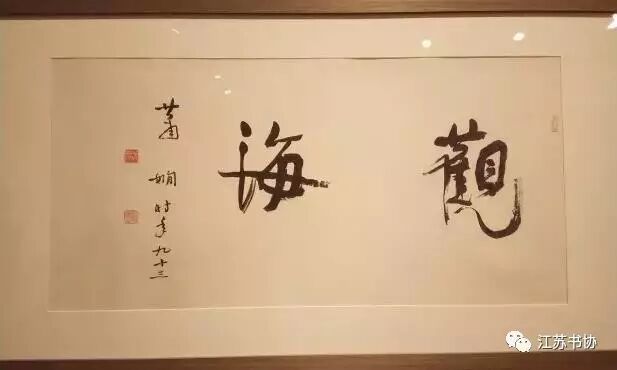 觀海
蕭嫻時年九十三
江苏书协